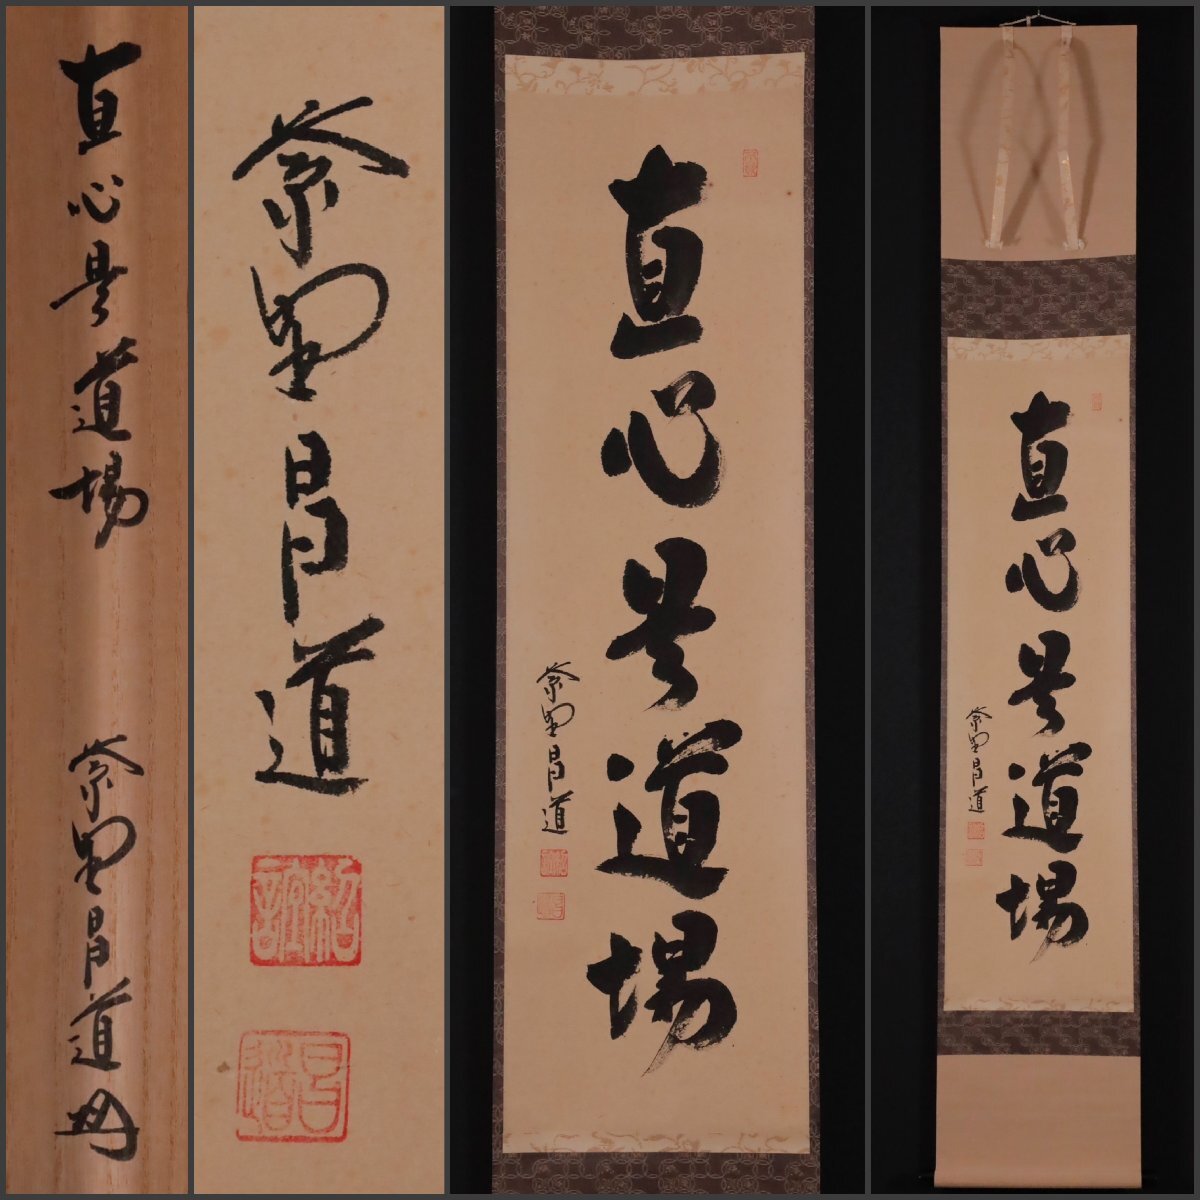 直心是道場
紫野昌道
紫野昌道
紹誼
昌道
直心是道場
紫野昌道
直心是道場
紫野昌道